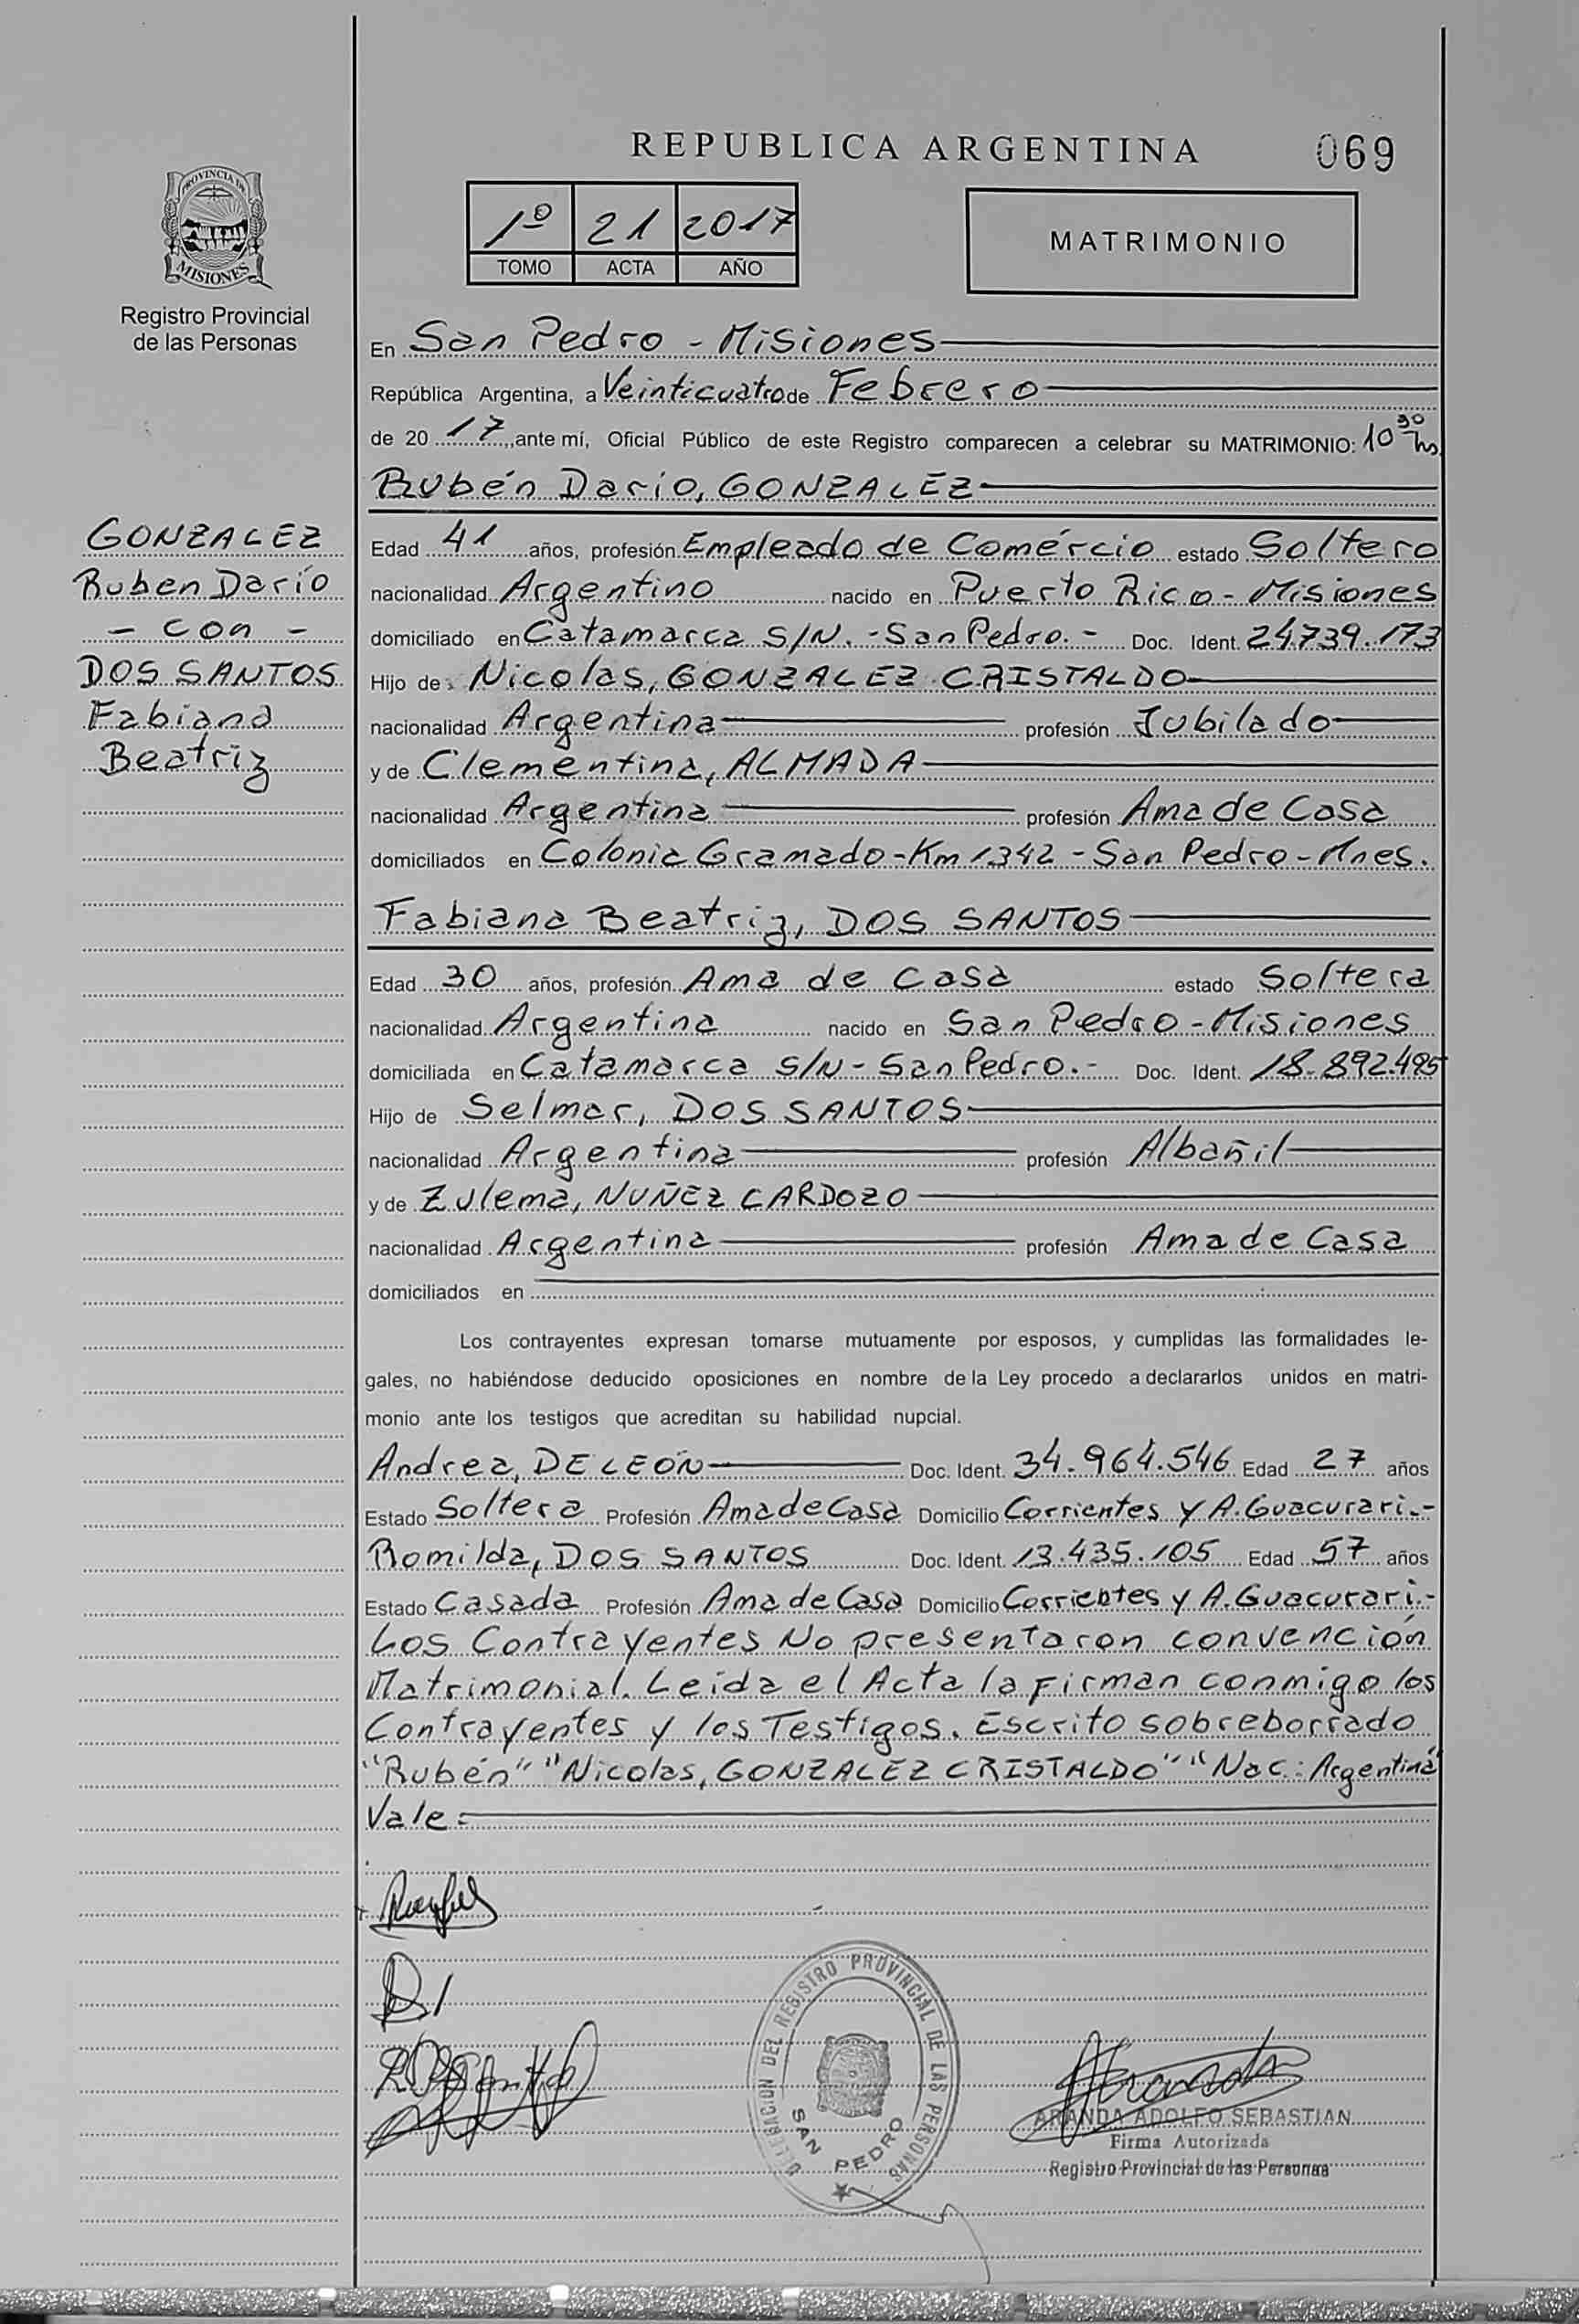 REPUBLICA ARGENTINA
069
PROVINCIA DE
MISIONES
Registro Provincial
de las Personas
1º 21 2017
TOMO ACTA AÑO
MATRIMONIO
En San Pedro - Misiones
República Argentina, a Veinticuatro de Febrero
de 20 17, ante mí, Oficial Público de este Registro comparecen a celebrar su MATRIMONIO: 10 30 hs
Rubén Darío, GONZALEZ
GONZALEZ
Ruben Darío
- con -
DOS SANTOS
Fabiana
Beatriz
Edad 41 años, profesión Empleado de Comércio estado Soltero
nacionalidad Argentino nacido en Puerto Rico - Misiones
domiciliado en Catamarca S/N. - San Pedro. - Doc. Ident. 24.739.173
Hijo de Nicolas, GONZALEZ CRISTALDO
nacionalidad Argentina profesión Jubilado
y de Clementina, ALMADA
nacionalidad Argentina profesión Ama de Casa
domiciliados en Colonia Gramado - Km 1342 - San Pedro - Mnes.
Fabiana Beatriz, DOS SANTOS
Edad 30 años, profesión Ama de Casa estado Soltera
nacionalidad Argentina nacido en San Pedro - Misiones
domiciliada en Catamarca S/N - San Pedro. - Doc. Ident. 18.892.495
Hijo de Selmar, DOS SANTOS
nacionalidad Argentina profesión Albañil
y de Zulema, NUÑEZ CARDOZO
nacionalidad Argentina profesión Ama de Casa
domiciliados en
Los contrayentes expresan tomarse mutuamente por esposos, y cumplidas las formalidades le-
gales, no habiéndose deducido oposiciones en nombre de la Ley procedo a declararlos unidos en matri-
monio ante los testigos que acreditan su habilidad nupcial.
Andrea, DE LEON Doc. Ident. 34.964.546 Edad 27 años
Estado Soltera Profesión Ama de Casa Domicilio Corrientes y A. Guacurari.-
Romilda, DOS SANTOS Doc. Ident. 13.435.105 Edad 57 años
Estado Casada Profesión Ama de Casa Domicilio Corrientes y A. Guacurarí.-
Los Contrayentes No presentaron convención
Matrimonial. Leída el Acta la Firman conmigo los
Contrayentes y los Testigos. Escrito sobreborrado
"Rubén" "Nicolas, GONZALEZ CRISTALDO" "Nac: Argentina"
Vale
DELEGACION DEL REGISTRO PROVINCIAL DE LAS PERSONAS
SAN PEDRO
ARANDA ADOLFO SEBASTIAN
Firma Autorizada
Registro Provincial de las Personas